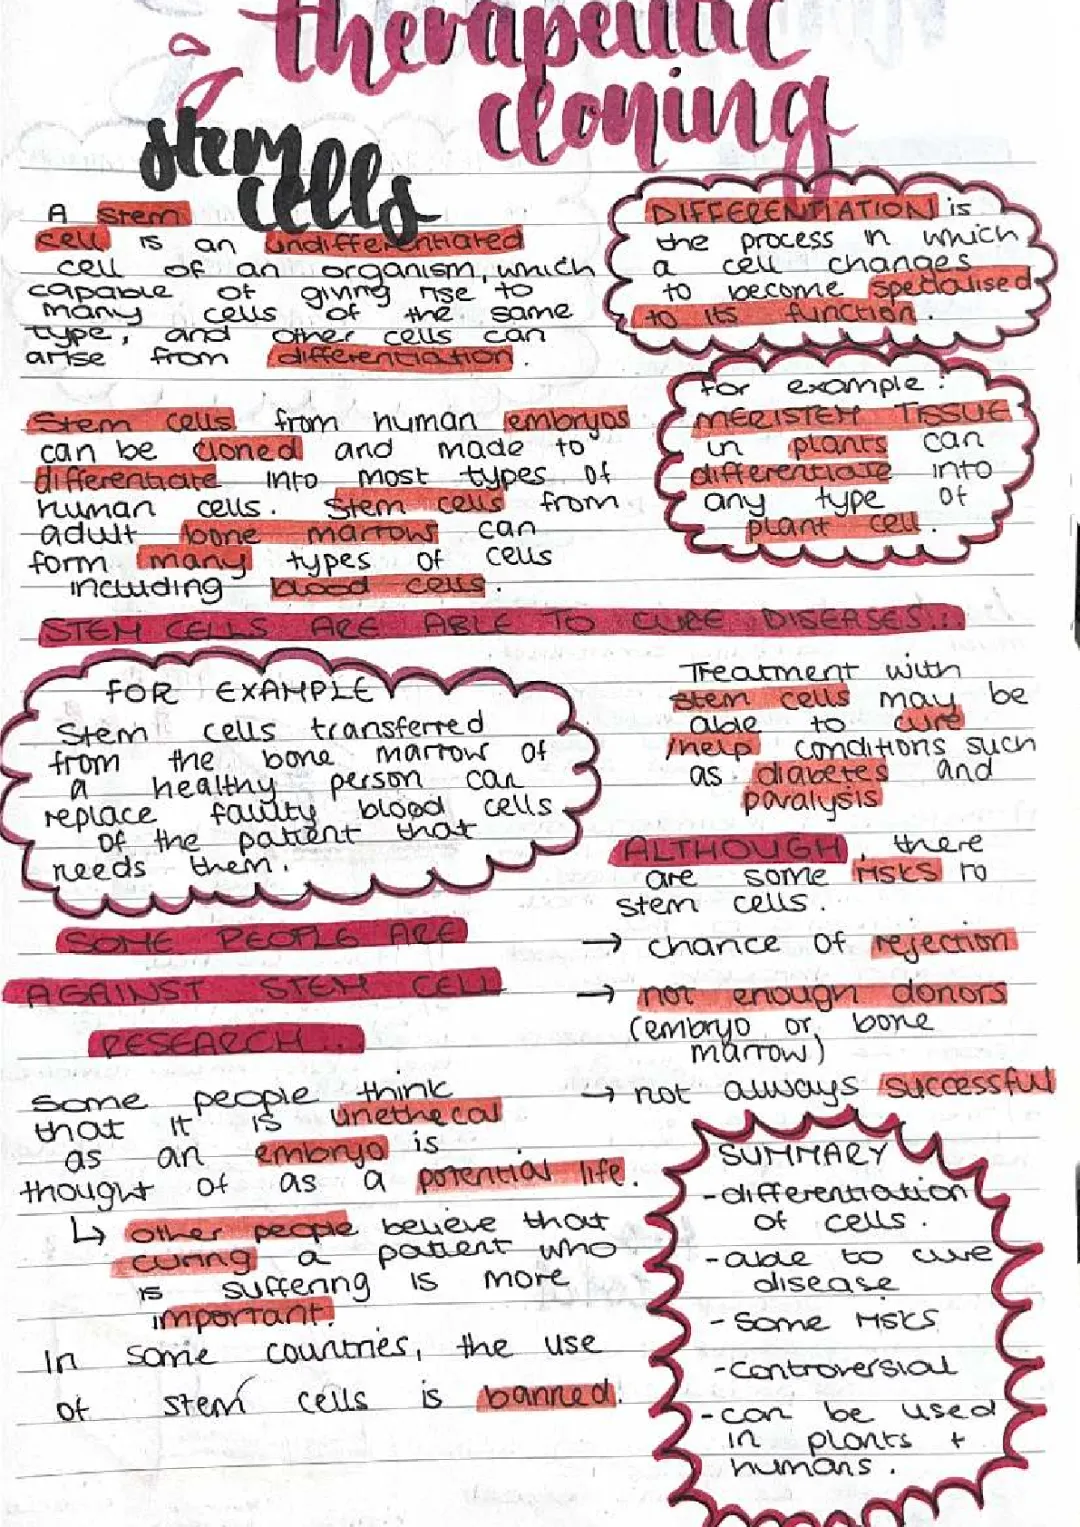 therapeutic
cloning
& stem
cells
A stem
cell is an undifferentiated
cell of an organism, which
capable of giving rise to
many cells of the same
type, and other cells can
arise from differentiation.
DIFFERENTIATION is
the process in which
a cell changes
to become specialised
to its function.
Stem cells from human embryos
can be cloned and made to
differentiate into most types of
human cells. Stem cells from
adult bone marrow can
form many types of cells
including blood cells.
for example:
MERISTEM TISSUE
in plants can
differentiate into
any type of
plant cell.
STEM CELLS ARE ABLE TO CURE DISEASES...
FOR EXAMPLE
Stem cells transferred
from the bone marrow of
a healthy person can
replace faulty blood cells
of the patient that
needs them.
Treatment with
stem cells may be
able to cure
/help conditions such
as diabetes and
paralysis
ALTHOUGH, there
are some risks to
stem cells.
→ chance of rejection
→ not enough donors
(embryo or bone
marrow)
→ not always successful
SOME PEOPLE ARE
AGAINST STEM CELL
RESEARCH...
Some people think
that it is unethecal
as an embryo is
thought of as a potential life.
↳ other people believe that
curing a patient who
is suffering is more
important.
In some countries, the use
of stem cells is banned.
SUMMARY
-differentiation
of cells.
-able to cure
disease
- Some risks
-controversial
-can be used
in plants +
humans.